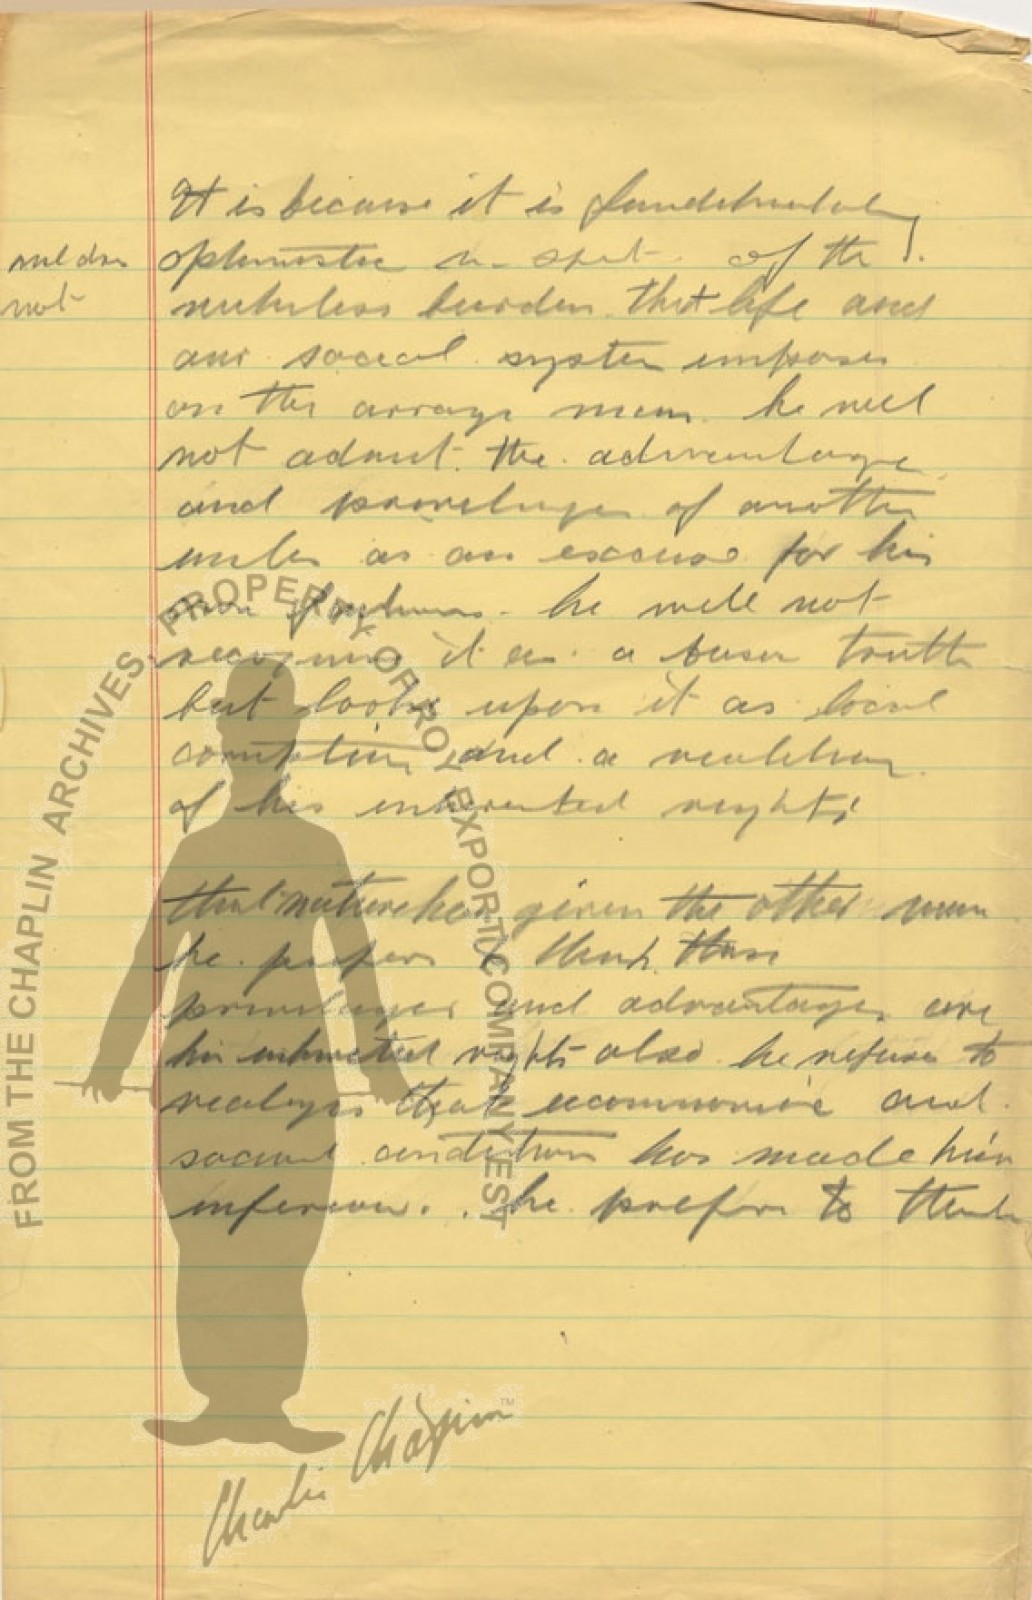 It is because it is fundementaly
and does
not
optimistic in spit of the
ruthless burden that life and
our social system imposes
on the avrage man. he will
not admit the adventage
and privelages of another
as an excuse for his
own he will not
recognise it as a truth
but looks upon it as local
and a
of his enherented rights
that nature has given the other man
he prefers to think these
privelages and advantages are
his enherited rights also he refuses to
realizes that econnomic and
social condition has made him
inferior. he prefers to think
FROM THE CHAPLIN ARCHIVES. PROPERTY OF ROY EXPORT COMPANY EST
Charlie Chaplin™